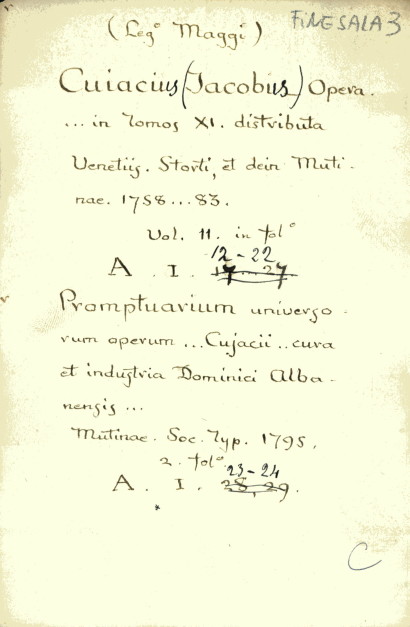 (Leg.° Maggi)
FINE SALA 3
Cuiacius (Jacobus) Opera.
... in Tomos XI. distributa
Venetiis. Storti, et dein Muti-
nae. 1758...83.
Vol. 11. in fol°
12-22
A. I. 17-27
Promptuarium universo-
rum operum ... Cujacii .. cura
et industria Dominici Alba-
nensis ...
Mutinae. Soc. Typ. 1795.
2. fol°
23-24
A. I. 28, 29.
*
C